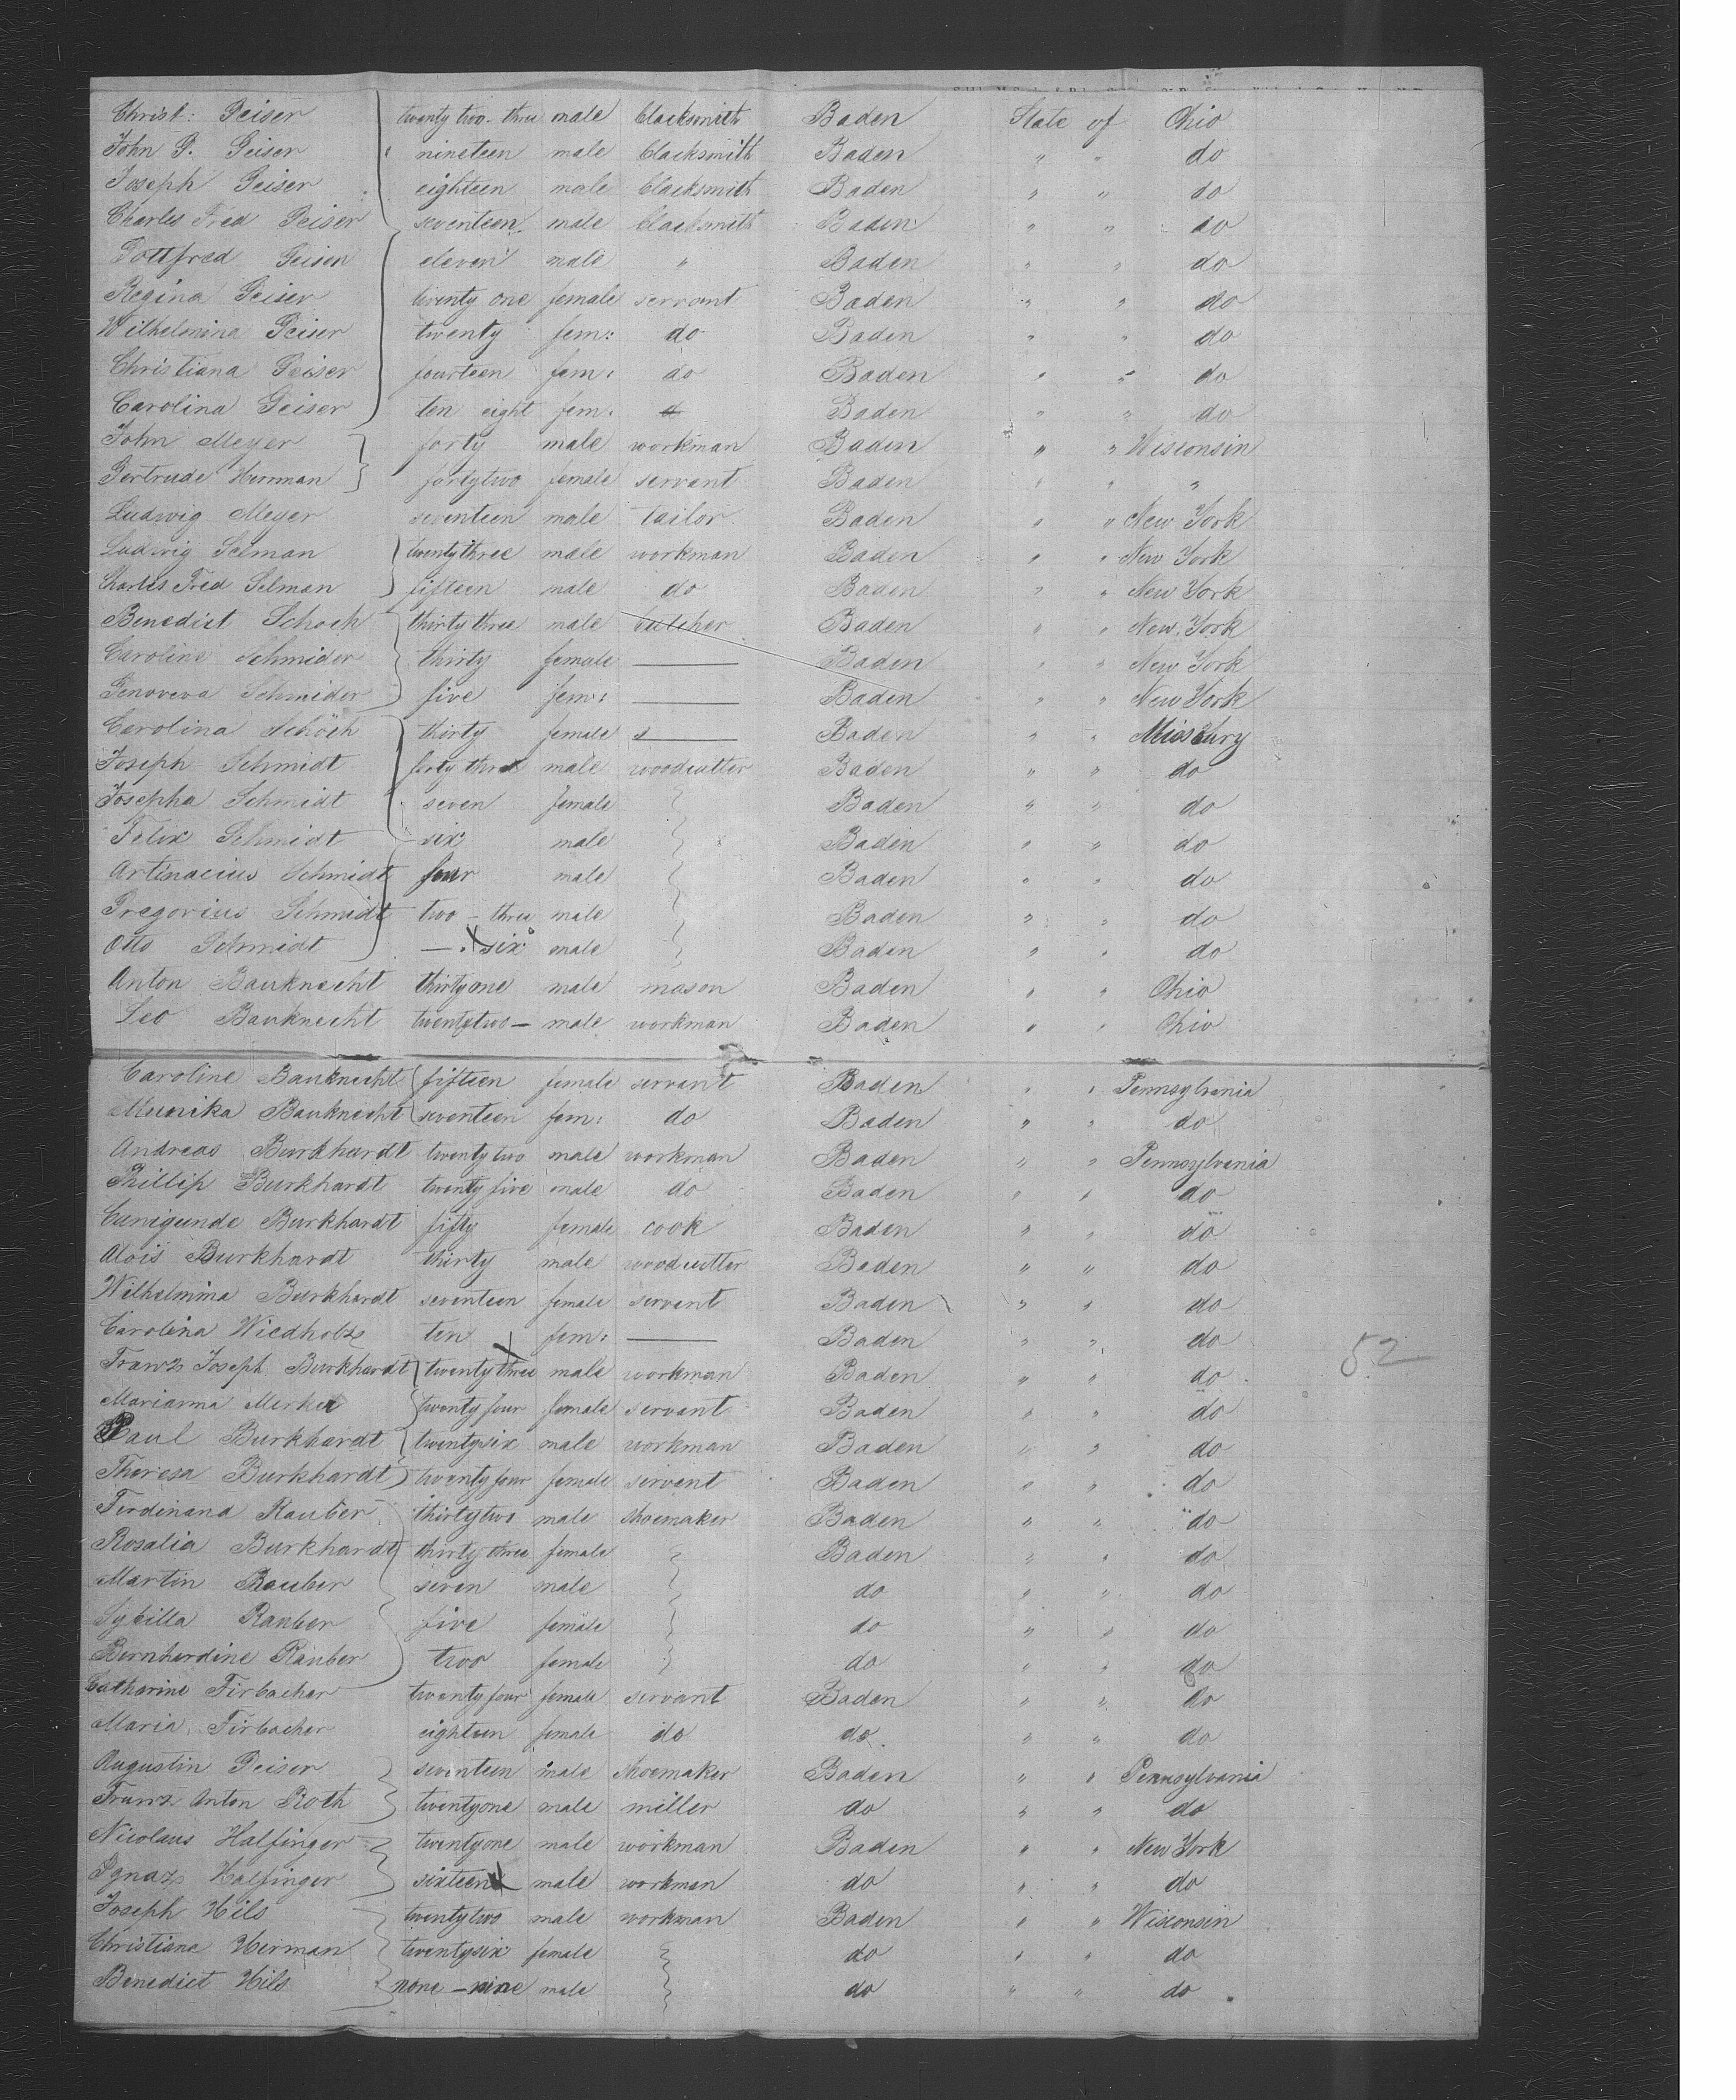 Christ: Geiser twenty two - three male blacksmith Baden State of Ohio
John G. Geiser nineteen male blacksmith Baden " " do
Joseph Geiser eighteen male blacksmith Baden " " do
Charles Fred Geiser seventeen male blacksmith Baden " " do
Gottfred Geiser eleven male " Baden " " do
Regina Geiser twenty one female servant Baden " " do
Wilhelmina Geiser twenty fem: do Baden " " do
Christiana Geiser fourteen fem: do Baden " " do
Carolina Geiser ten eight fem: Baden " " do
John Meyer forty male workman Baden " " Wisconsin
Gertrude Herrman forty two female servant Baden " " "
Ludwig Meyer seventeen male tailor Baden " " New York
Ludwig Selman twenty three male workman Baden " " New York
Charles Fred Selman fifteen male do Baden " " New York
Benedict Schoch thirty three male butcher Baden " " New York
Caroline Schmider thirty female — Baden " " New York
Genoveva Schmider five fem: — Baden " " New York
Carolina Schöch thirty female — Baden " " Missoury
Joseph Schmidt forty three male woodcutter Baden " " do
Josepha Schmidt seven female Baden " " do
Felix Schmidt six male Baden " " do
Artinacius Schmidt four male Baden " " do
Gregorius Schmidt two - three male Baden " " do
Otto Schmidt — six male Baden " " do
Anton Bauknecht thirty one male mason Baden " " Ohio
Leo Bauknecht twenty two — male workman Baden " " Ohio
Caroline Bauknecht fifteen female servant Baden " " Pennsylvania
Munika Bauknecht seventeen fem: do Baden " " do
Andreas Burkhardt twenty two male workman Baden " " Pennsylvania
Phillip Burkhardt twenty five male do Baden " " do
Cunigunde Burkhardt fifty female cook Baden " " do
Alois Burkhardt thirty male woodcutter Baden " " do
Wilhelmina Burkhardt seventeen female servant Baden " " do
Carolina Wiedholz ten fem: — Baden " " do
52
Franz Joseph Burkhardt twenty three male workman Baden " " do
Marianna Merkel twenty four female servant Baden " " do
Paul Burkhardt twenty six male workman Baden " " do
Theresa Burkhardt twenty four female servant Baden " " do
Ferdinand Rauber thirty two male shoemaker Baden " " do
Rosalia Burkhardt thirty three female Baden " " do
Martin Rauber seven male do " " do
Sybilla Rauber five female do " " do
Bernhardine Rauber two female do " " do
Catharine Firbacher twenty four female servant Baden " " do
Maria Firbacher eighteen female do do " " do
Augustin Geiser seventeen male shoemaker Baden " " Pennsylvania
Franz Anton Roth twenty one male miller do " " do
Nicolaus Halfinger twenty one male workman Baden " " New York
Ignaz Halfinger sixteen male workman do " " do
Joseph Hils twenty two male workman Baden " " Wisconsin
Christiane Herman twenty six female do " " do
Benedict Hils none - nine male do " " do